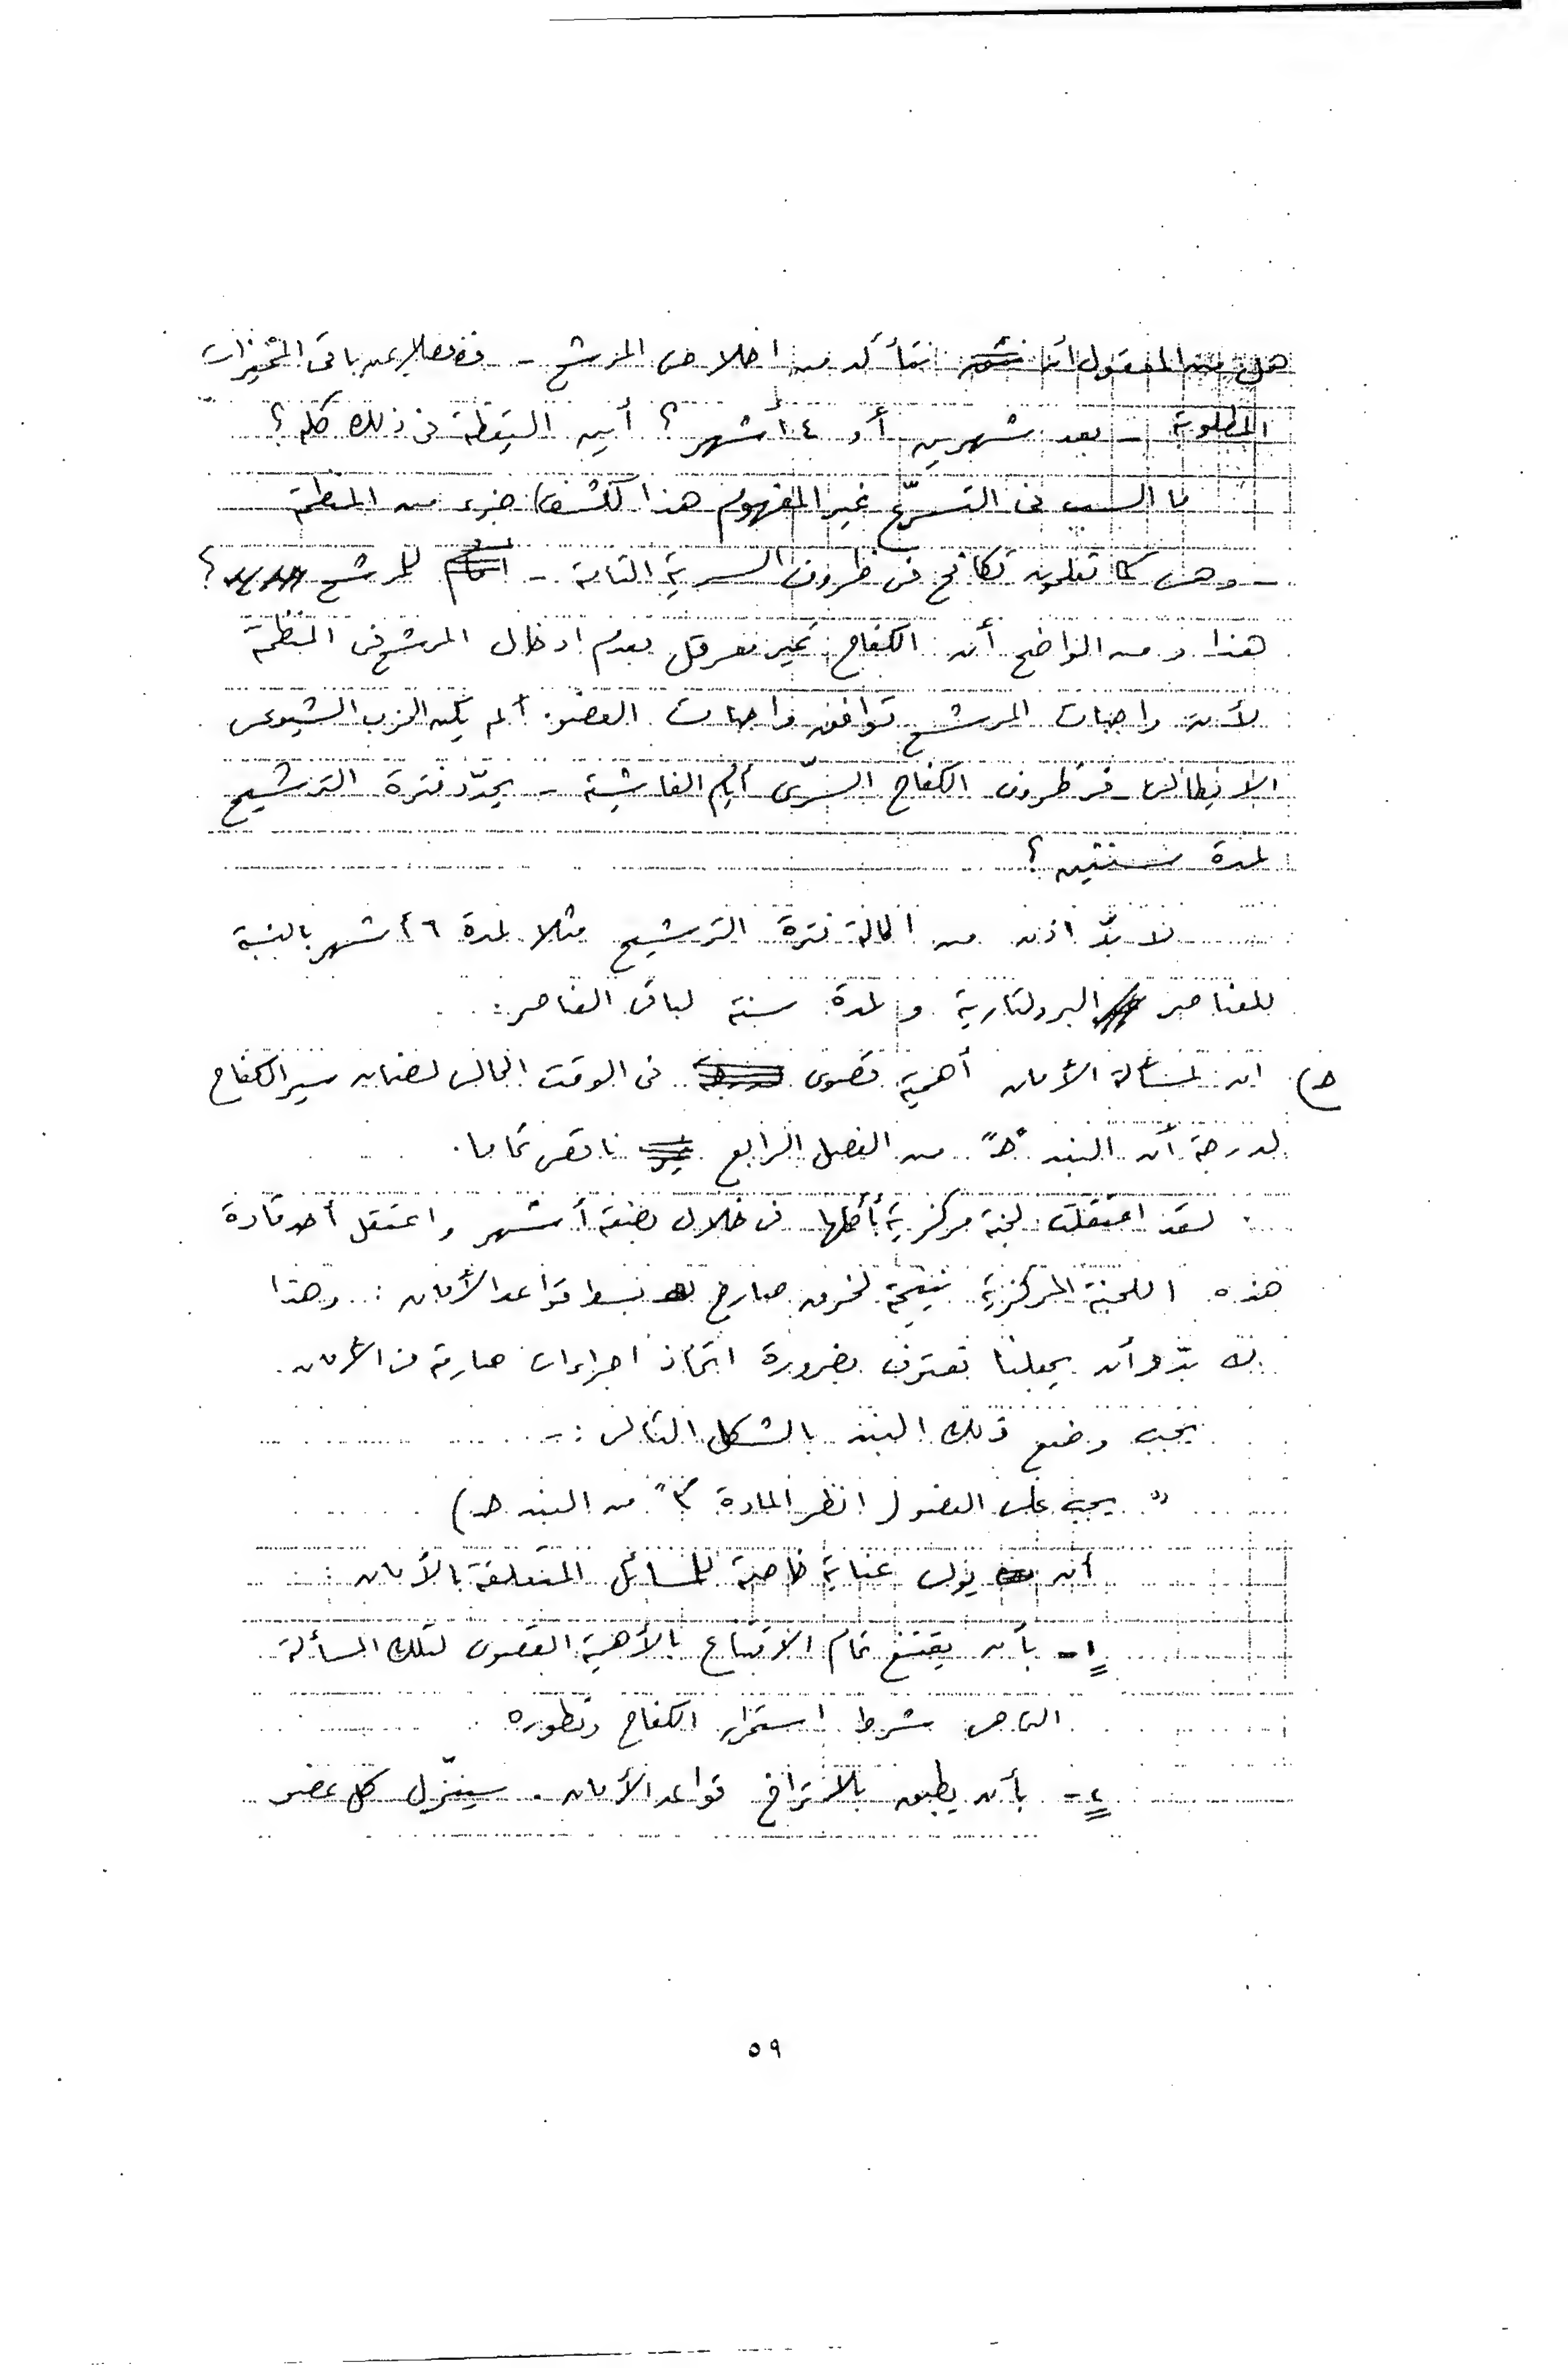 هل من المعقول أن نتأكد من اخلاص المرشح - فضلا عن باقى المميزات
المطلوبة - بعد شهرين أو ٤ أشهر؟ أين اليقظة فى ذلك كله؟
ما السبب فى التسرّع غير المفهوم هذا لكشف جزء من المنظمة
- وهى كما تعلمون تكافح فى ظروف السرية التامة - للمرشح؟
هذا ومن الواضح أن الكفاح غير معرقل بعدم ادخال المرشح فى المنظمة
لأن واجبات المرشح توافق واجبات العضو. ألم يكن الحزب الشيوعى
الايطالى - فى ظروف الكفاح السرّى أيام الفاشية - يحدّد فترة الترشيح
لمدة سنتين؟
لا بدّ اذن من اطالة فترة الترشيح مثلا لمدة ٦ أشهر بالنسبة
للعناصر البرولتارية ولمدة سنة لباقى العناصر.
حـ) ان لمسألة الأمان أهمية قصوى فى الوقت الحالى لضمان سير الكفاح
لدرجة أن البند "حـ" من الفصل الرابع ناقص تماما.
لقد اعتقلت لجنة مركزية بأكملها فى خلال بضعة أشهر واعتقل أحد قادة
هذه اللجنة المركزية نتيجة لخرق صارخ لأبسط قواعد الأمان. وهذا
لا بدّ وأن يجعلنا نعترف بضرورة اتخاذ اجراءات صارمة فى الأمان.
يجب وضع ذلك البند بالشكل التالى :-
" يجب على العضو (انظر المادة "٣" من البند حـ)
أن يولى عناية خاصة للمسائل المتعلقة بالأمان :
١- بأن يقتنع تمام الاقتناع بالأهمية القصوى لتلك المسألة
التى هى شرط استمرار الكفاح وتطوره
٢- بأن يطبق بلا تراخ قواعد الأمان. سينزّل كل عضو
٥٩